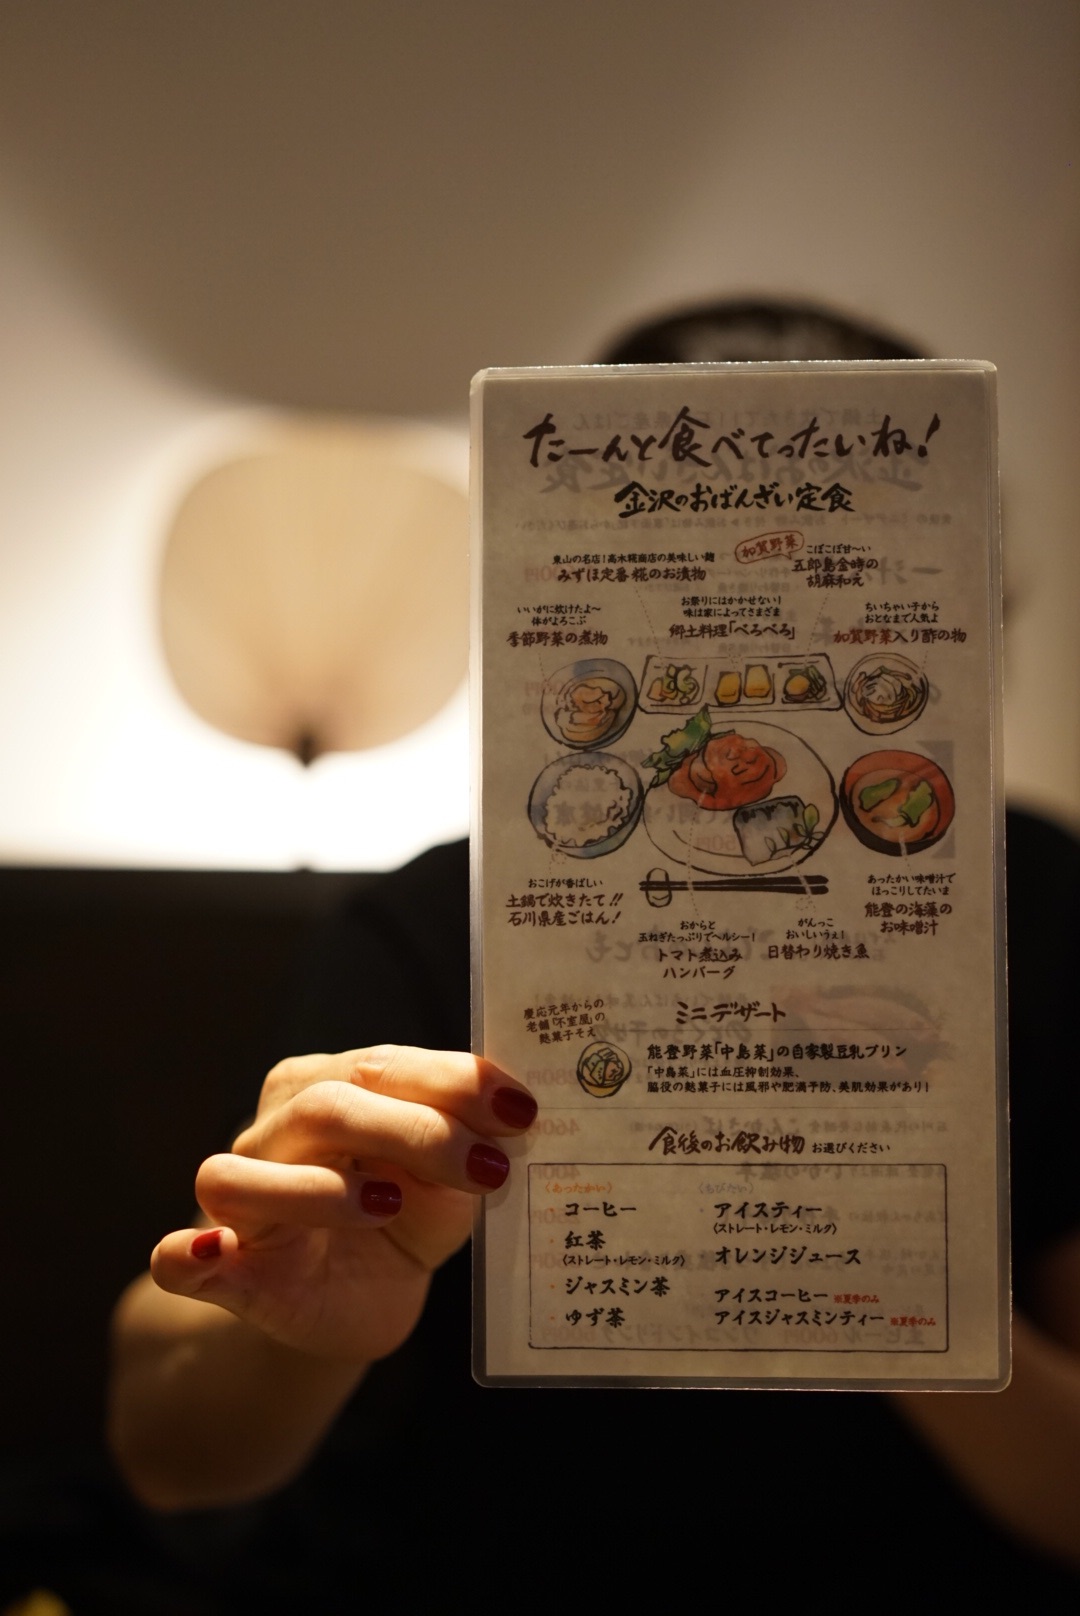 たーんと食べてったいね!
金沢のおばんざい定食
東山の名店!高木糀商店の美味しい麹
みずほ定番 糀のお漬物
加賀野菜
こぼこぼ甘〜い
五郎島金時の
胡麻和え
いいがに炊けたよ〜
体がよろこぶ
季節野菜の煮物
お祭りにはかかせない!
味は家によってさまざま
郷土料理「べろべろ」
ちいちゃい子から
おとなまで人気よ
加賀野菜入り酢の物
おこげが香ばしい
土鍋で炊きたて!!
石川県産ごはん!
おからと
玉ねぎたっぷりでヘルシー!
トマト煮込み
ハンバーグ
がんっこ
おいしいうぇ!
日替わり焼き魚
あったかい味噌汁で
ほっこりしてたいま
能登の海藻の
お味噌汁
慶応元年からの
老舗「不室屋」の
麩菓子そえ
ミニデザート
能登野菜「中島菜」の自家製豆乳プリン
「中島菜」には血圧抑制効果、
脇役の麩菓子には風邪や肥満予防、美肌効果があり!
食後のお飲み物 お選びください
〈あったかい〉
コーヒー
紅茶
〈ストレート・レモン・ミルク〉
ジャスミン茶
ゆず茶
〈ちびたい〉
アイスティー
〈ストレート・レモン・ミルク〉
オレンジジュース
アイスコーヒー ※夏季のみ
アイスジャスミンティー ※夏季のみ